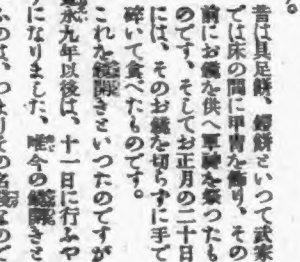 昔は具足餅、鎧餅といつて武家
では床の間に甲冑を飾り、その
前にお鏡を供へ軍神を祭つたも
のです、そしてお正月の二十日
には、そのお鏡を切らずに手で
碎いて食べたものです。
これを鏡開きといつたのですが
永九年以後は、十一日に行ふや
になりました、唯今の鏡開きさ
ふのは、つまりその名殘なので